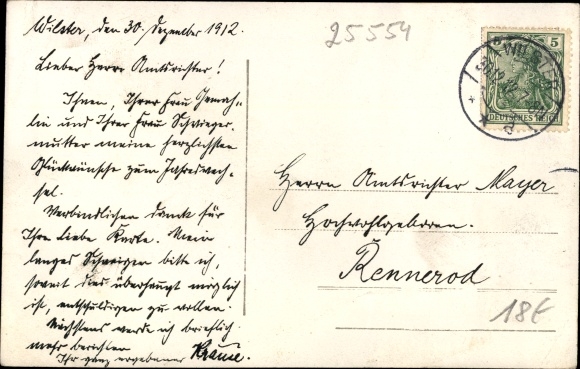 Wilster, den 30. Dezember 1912.
Lieber Herr Amtsrichter!
Ihnen, Ihrer Frau Gemah-
lin und Ihrer Frau Schwieger-
mutter meine herzlichsten
Glückwünsche zum Jahreswech-
sel.
Verbindlichen Dank für
Ihre liebe Karte. Mein
langes Schweigen bitte ich,
soweit dies überhaupt möglich
ist, entschuldigen zu wollen.
Nächstens werde ich brieflich
mehr berichten
Ihr ganz ergebener Krause.
25554
5
DEUTSCHES REICH
WILSTER
Herrn Amtsrichter Mayer
Hochwohlgeboren.
Rennerod
18€